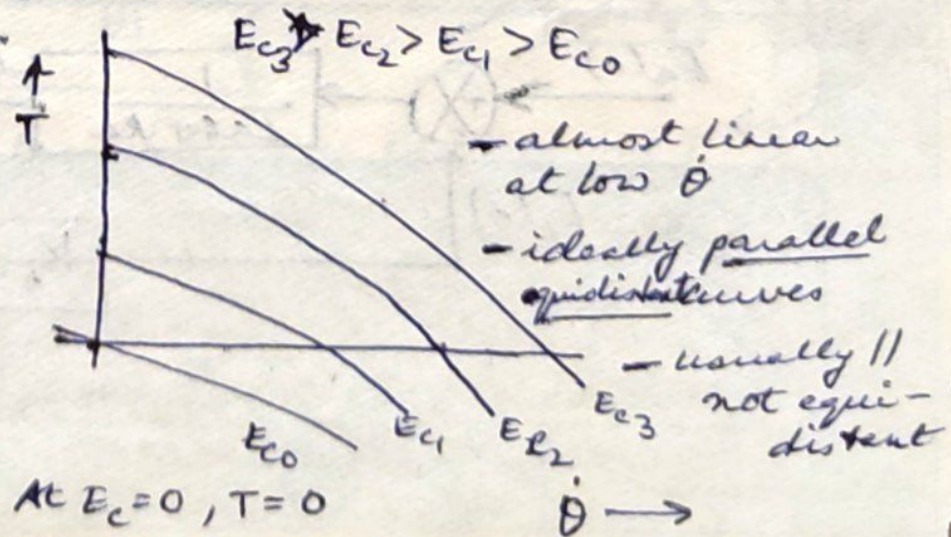 E_c3 > E_c2 > E_c1 > E_c0
↑
T
- almost linear
at low θ̇
- ideally parallel
equidistant curves
- usually ||
not equi-
distent
E_c0
E_c1
E_c2
E_c3
At E_c = 0, T = 0
θ̇ →